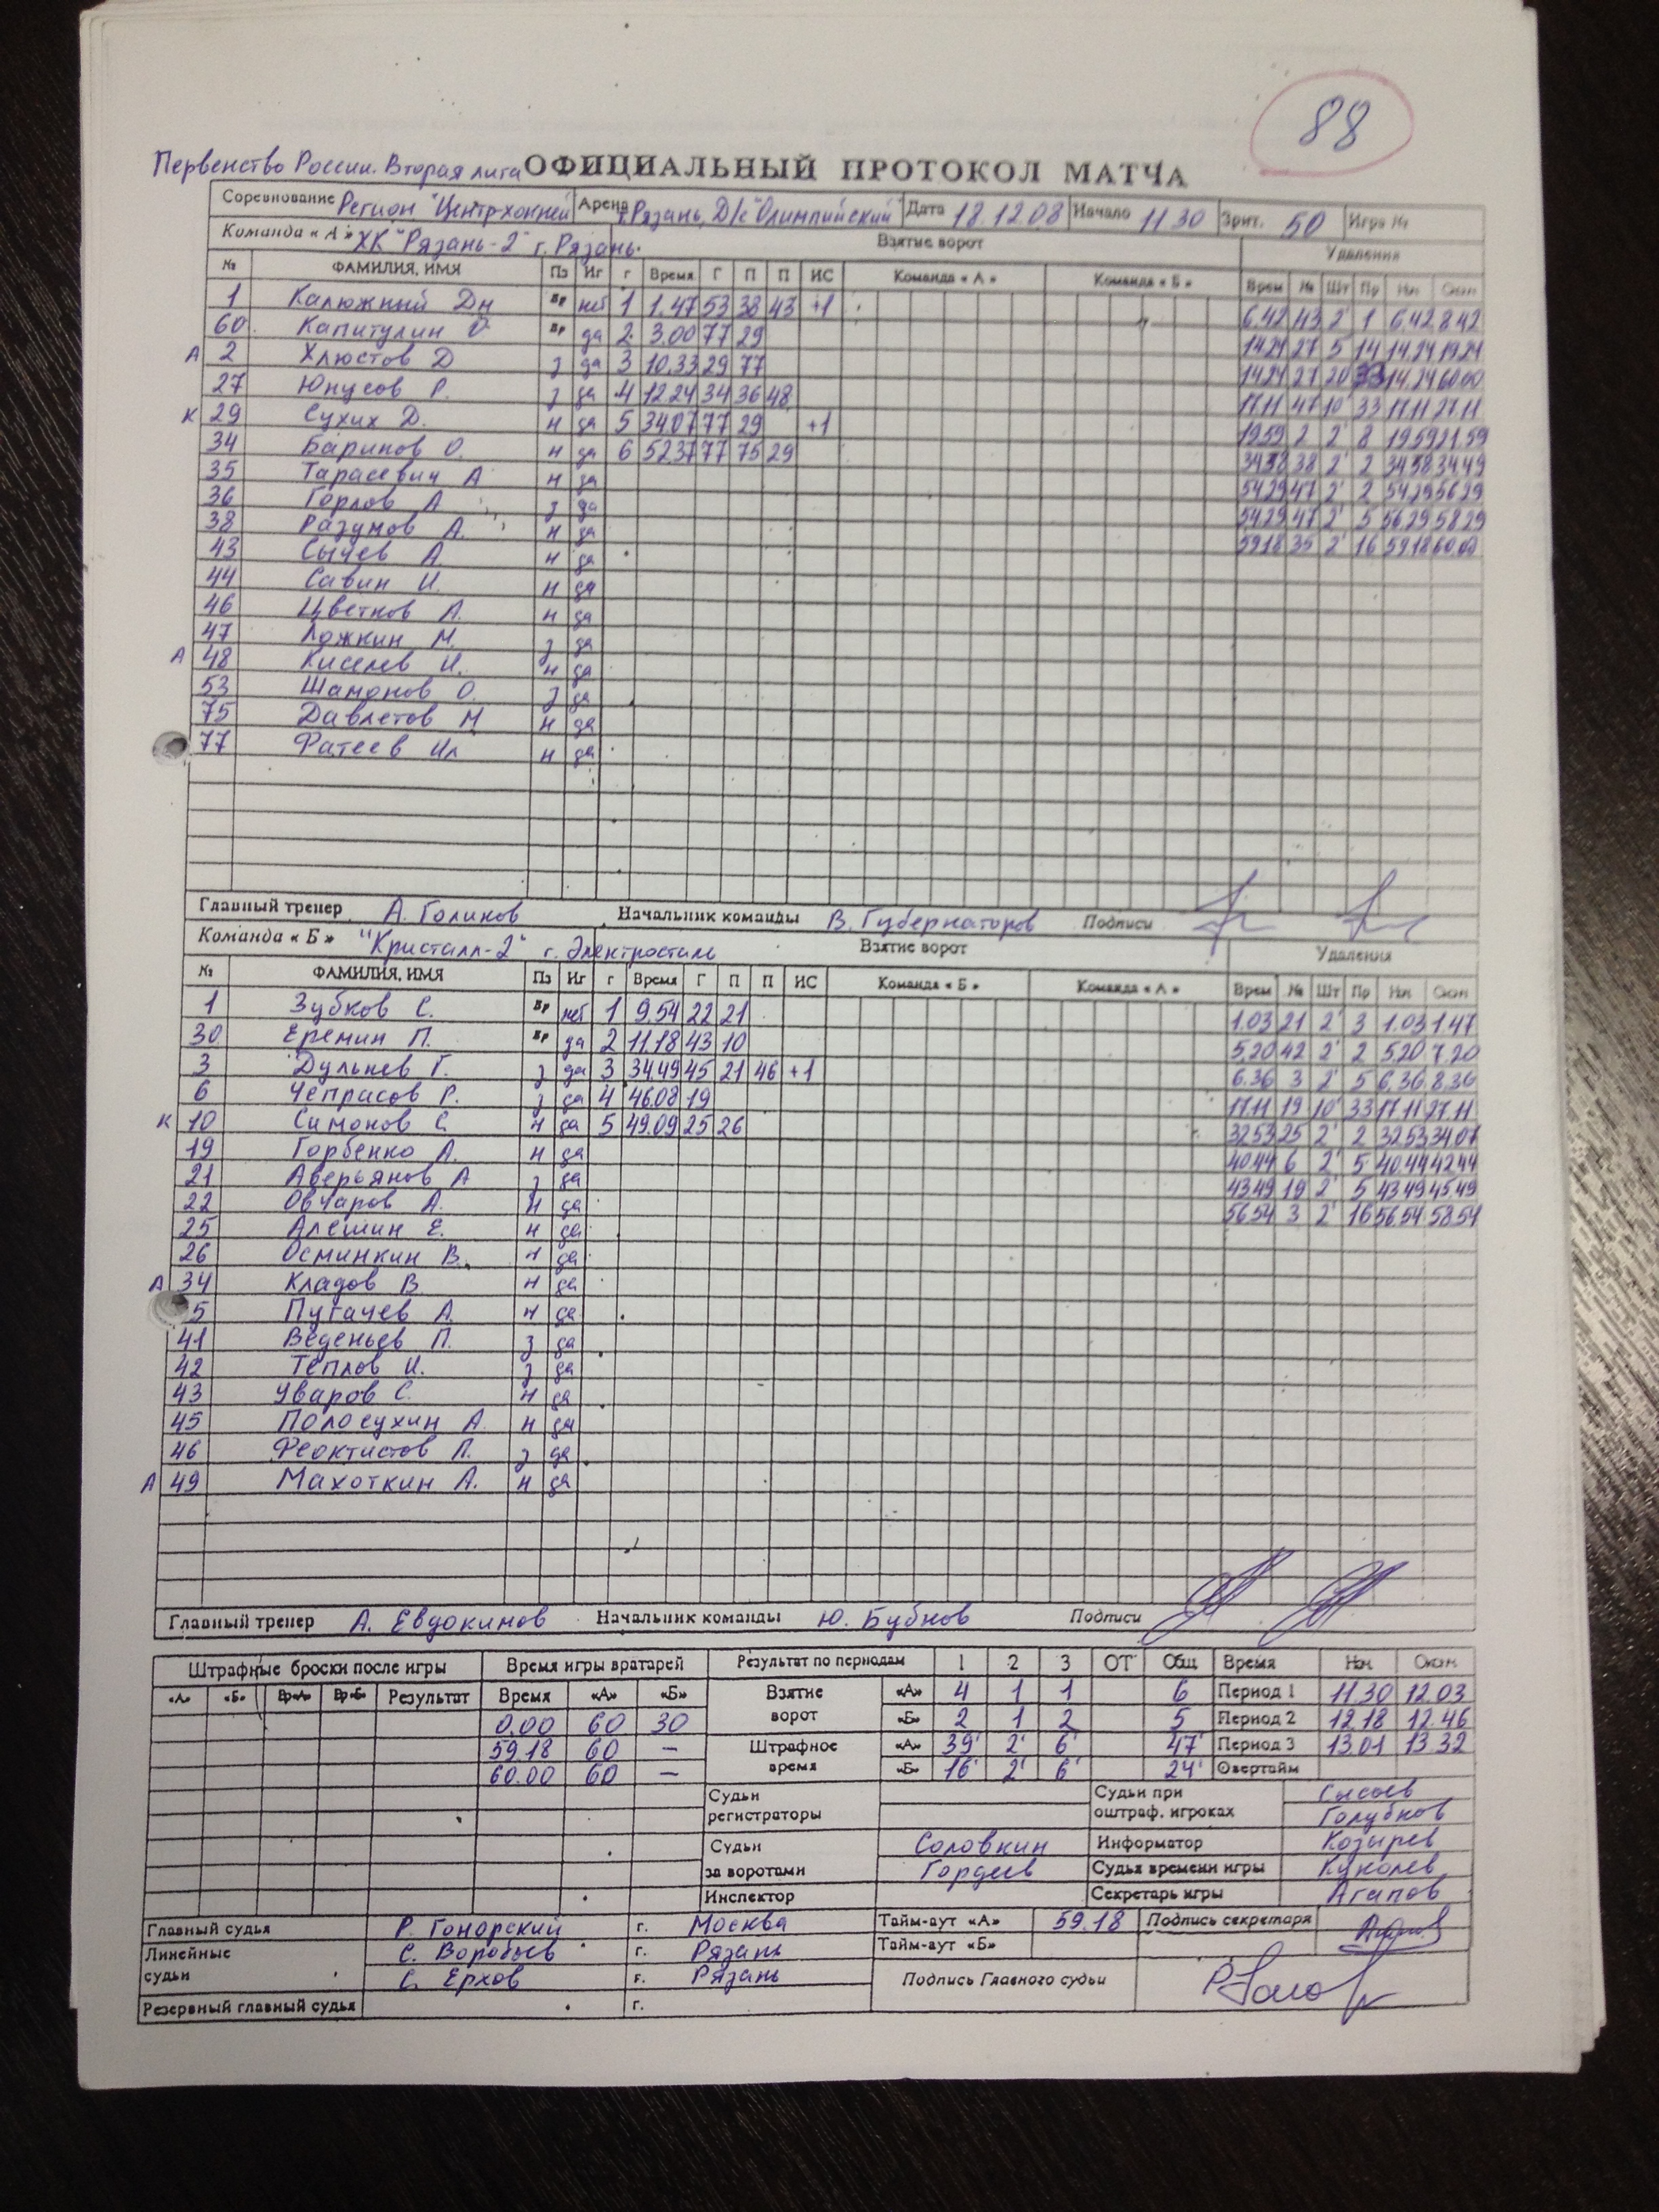 88
Первенство России. Вторая лига ОФИЦИАЛЬНЫЙ ПРОТОКОЛ МАТЧА
Соревнование Регион "Центр-хоккей" Арена г. Рязань, Д/с "Олимпийский" Дата 18.12.08 Начало 11 30 Зрит. 50 Игра №
Команда « А » ХК "Рязань-2" г. Рязань. Взятие ворот Удаления
№ ФАМИЛИЯ, ИМЯ Пз Иг г Время Г П П ИС Команда « А » Команда « Б » Врем № Шт Пр Нач Окон
1 Калюжный Дн Вр нет 1 1.47 53 38 43 +1 6.42 43 2' 1 6.42 8.42
60 Капитулин О Вр да 2 3.00 77 29 14.24 27 5 14 14.24 19.24
А 2 Хлюстов Д з да 3 10.33 29 77 14.24 27 20' 14.24 60.00
27 Юнусов Р. з да 4 12.24 34 36 48 17.11 47 10' 33 17.11 27.11
К 29 Сухих Д. н да 5 34.07 77 29 +1 19.59 2 2' 8 19.59 21.59
34 Баринов О. н да 6 52.37 77 75 29 38 2' 2 34.49
35 Тарасевич А н да 54.29 47 2' 2 54.29 56.29
36 Горлов А з да 54.29 47 2' 5 56.29 58.29
38 Разумов А. н да 59.18 35 2' 16 59.18 60.00
43 Сычев А. н да
44 Савин И. н да
46 Цветков А. н да
47 Ложкин М. з да
А 48 Киселев И. н да
53 Шамонов О. з да
75 Давлетов М н да
77 Фатеев Ил н да
Главный тренер А. Голиков Начальник команды В. Губернаторов Подписи
Команда « Б » "Кристалл-2" г. Электросталь Взятие ворот Удаления
№ ФАМИЛИЯ, ИМЯ Пз Иг г Время Г П П ИС Команда « Б » Команда « А » Врем № Шт Пр Нач Окон
1 Зубков С. Вр нет 1 9.54 22 21 1.03 21 2' 3 1.03 1.47
30 Еремин П. Вр да 2 11.18 43 10 5.20 42 2' 2 5.20 7.20
3 Дульнев Г. з да 3 34.49 45 21 46 +1 6.36 3 2' 5 6.36 8.36
6 Чепрасов Р. з да 4 46.08 19 17.11 19 10' 33 17.11 27.11
К 10 Симонов С н да 5 49.09 25 26 32.53 25 2' 2 32.53 34.07
19 Горбенко А. н да 40.44 6 2' 5 40.44 42.44
21 Аверьянов А з да 43.49 19 2' 5 43.49 45.49
22 Овчаров А. н да 56.54 3 2' 16 56.54 58.54
25 Алешин Е. н да
26 Осминкин В. н да
А 34 Кладов В. н да
5 Пугачев А. н да
41 Веденьев П. з да
42 Теплов И. з да
43 Уваров С. н да
45 Полосухин А. н да
46 Феоктистов П. з да
А 49 Махоткин А. н да
Главный тренер А. Евдокимов Начальник команды Ю. Бубнов Подписи
Штрафные броски после игры Время игры вратарей Результат по периодам 1 2 3 ОТ Общ Время Нач. Оконч.
«А» «Б» Вр«А» Вр«Б» Результат Время «А» «Б» Взятие ворот «А» 4 1 1 6 Период 1 11.30 12.03
0.00 60 30 «Б» 2 1 2 5 Период 2 12.18 12.46
59.18 60 – Штрафное время «А» 39' 2' 6' 47' Период 3 13.01 13.32
60.00 60 – «Б» 16' 2' 6' 24' Овертайм
Судьи регистраторы Судьи при оштраф. игроках Сысоев
Голубков
Судьи за воротами Соловкин Информатор Козырев
Гордеев Судья времени игры Куколев
Инспектор Секретарь игры Агапов
Главный судья Р. Гонорский г. Москва Тайм-аут «А» 59.18 Подпись секретаря
Линейные судьи С. Воробьев г. Рязань Тайм-аут «Б»
С. Ерхов г. Рязань Подпись Главного судьи
Резервный главный судья г.